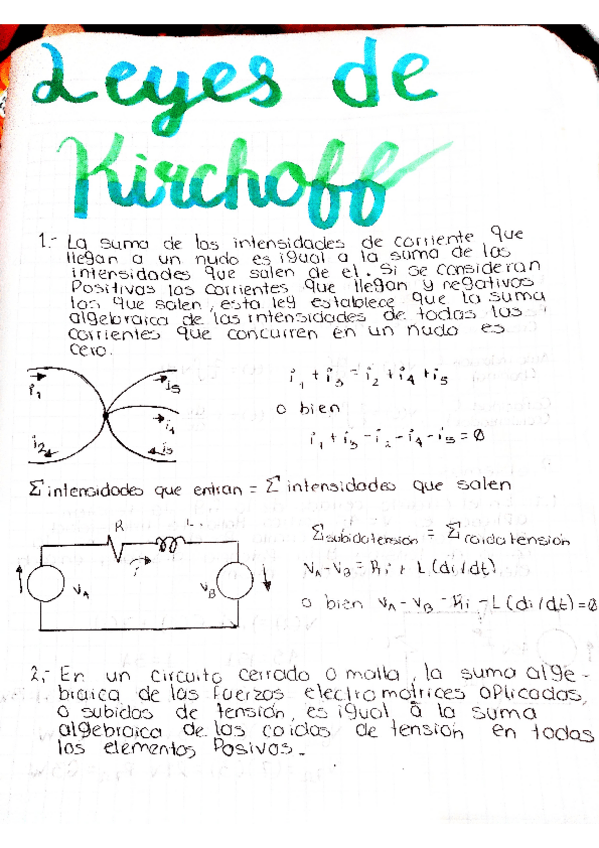 Leyes de
Kirchoff
1.- La suma de las intensidades de corriente que
llegan a un nudo es igual a la suma de las
intensidades que salen de el. Si se consideran
Positivas las corrientes que llegan y negativas
las que salen, esta ley establece que la suma
algebraica de las intensidades de todas las
corrientes que concurren en un nudo es
cero.
i₁ i₅
i₄
i₂ i₃
i₁ + i₃ = i₂ + i₄ + i₅
o bien
i₁ + i₃ - i₂ - i₄ - i₅ = 0
Σ intensidades que entran = Σ intensidades que salen
R L
i
VA VB
Σ subida tensión = Σ caida tensión
VA - VB = Ri + L (di/dt)
o bien VA - VB - Ri - L (di/dt) = 0
2.- En un circuito cerrado o malla, la suma alge-
braica de las fuerzas electromotrices aplicadas,
o subidas de tensión, es igual a la suma
algebraica de las caidas de tensión en todas
los elementos Pasivos.